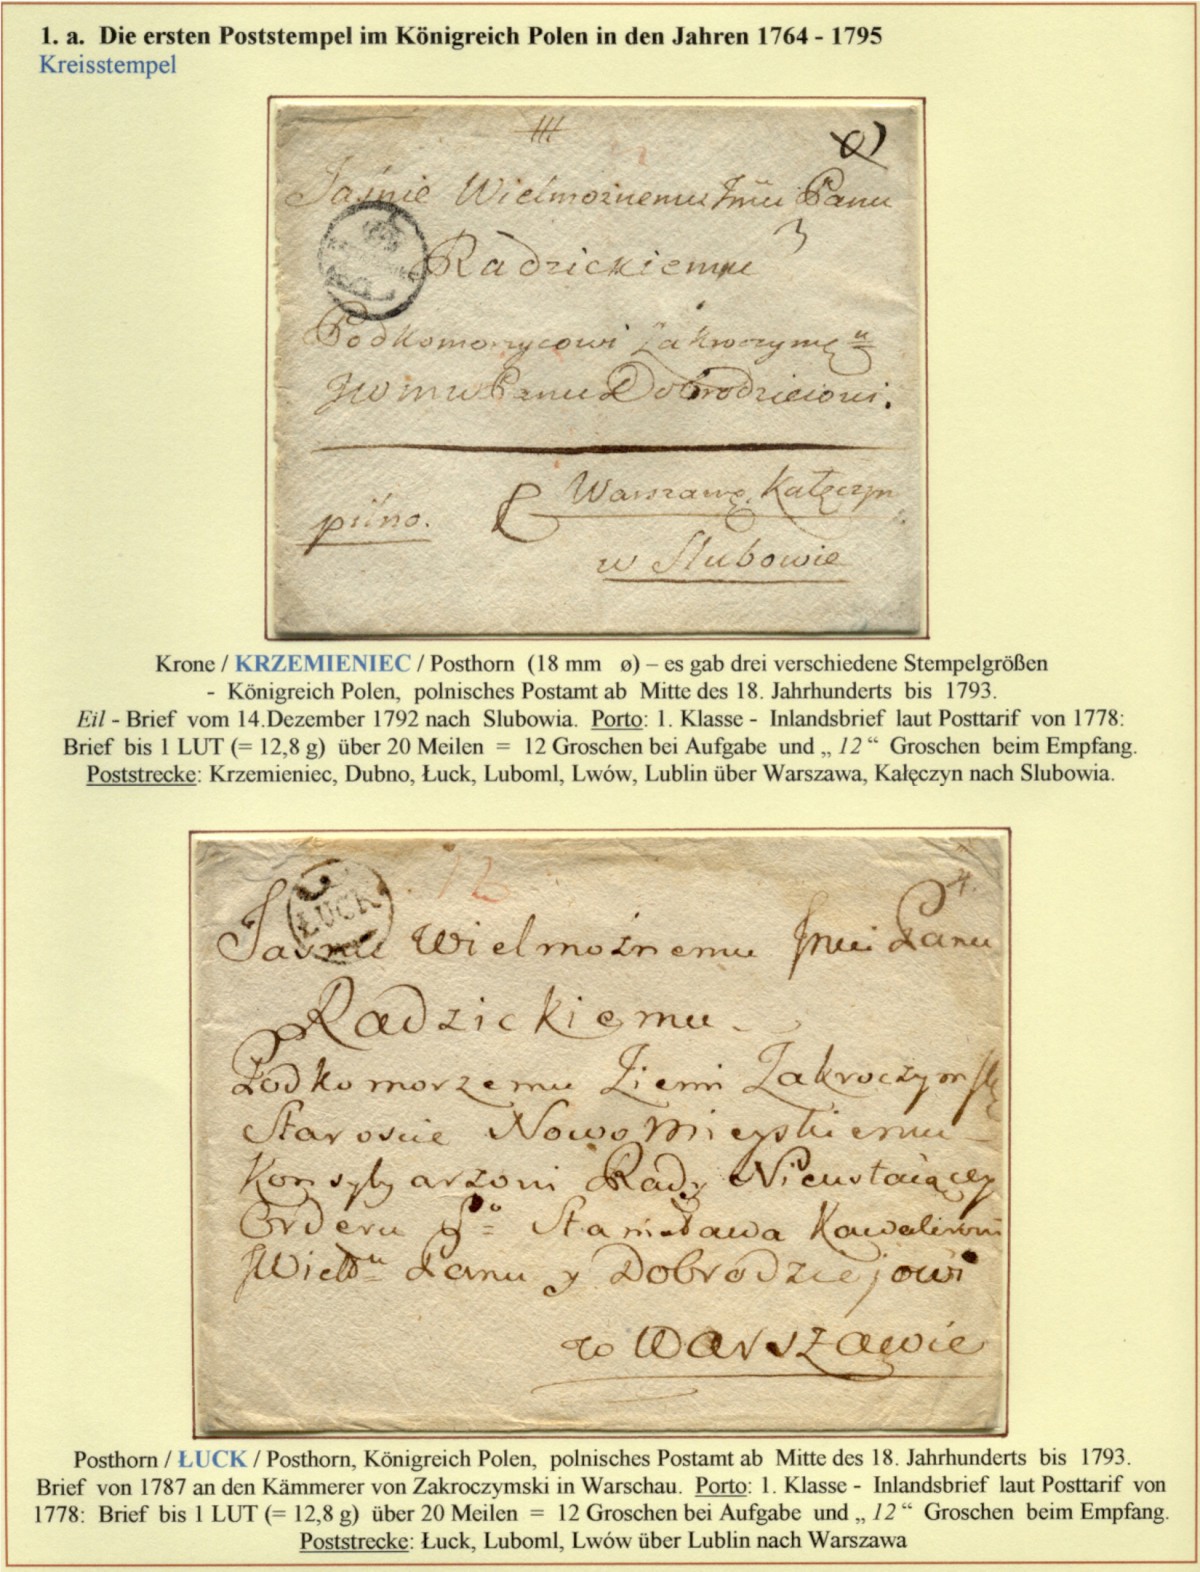 1. a. Die ersten Poststempel im Königreich Polen in den Jahren 1764 - 1795
Kreisstempel
Jaśnie Wielmożnemu Jmci Panu
Radzickiemu
Podkomorzycowi Zakroczyms
Panu Dobrodzieiowi.
Warszawę, Kałęczyn
pilno.
w Slubowie
Krone / KRZEMIENIEC / Posthorn (18 mm ø) – es gab drei verschiedene Stempelgrößen
- Königreich Polen, polnisches Postamt ab Mitte des 18. Jahrhunderts bis 1793.
Eil - Brief vom 14.Dezember 1792 nach Slubowia. Porto: 1. Klasse - Inlandsbrief laut Posttarif von 1778:
Brief bis 1 LUT (= 12,8 g) über 20 Meilen = 12 Groschen bei Aufgabe und „ 12 “ Groschen beim Empfang.
Poststrecke: Krzemieniec, Dubno, Łuck, Luboml, Lwów, Lublin über Warszawa, Kałęczyn nach Slubowia.
12
ŁUCK
Jasnie Wielmożnemu Jmci Panu
Radzickiemu
Podkomorzemu Ziemi Zakroczymski
Staroscie NowoMieyskiemu
Konsylyarzowi Rady Nieustaiącey
Orderu S° Stanisława Kawalerowi
Panu y Dobrodziejowi
w Warszawie
Posthorn / ŁUCK / Posthorn, Königreich Polen, polnisches Postamt ab Mitte des 18. Jahrhunderts bis 1793.
Brief von 1787 an den Kämmerer von Zakroczymski in Warschau. Porto: 1. Klasse - Inlandsbrief laut Posttarif von
1778: Brief bis 1 LUT (= 12,8 g) über 20 Meilen = 12 Groschen bei Aufgabe und „ 12 “ Groschen beim Empfang.
Poststrecke: Łuck, Luboml, Lwów über Lublin nach Warszawa